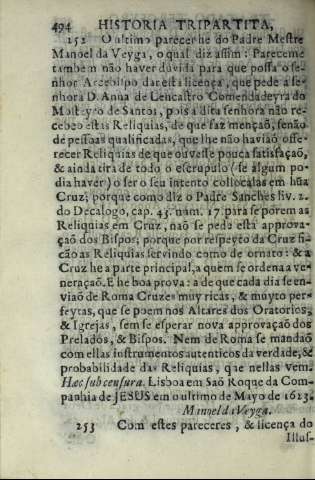 494 HISTORIA TRIPARTITA,
152 O ultimo parecer he do Padre Mestre
Manoel da Veyga, o qual diz assim: Pareceme
tambem não haver duvida para que possa o se-
nhor Arcebispo dar esta licença, que pede a se-
nhora D. Anna de Lencastro Comendadeyra do
Mosteyro de Santos, pois a dita senhora não re-
cebeo estas Reliquias, de que faz mençaõ, senão
de pessoas qualificadas, que lhe não havião offe-
recer Reliquias de que ouvesse pouca satisfaçaõ,
& ainda tira de todo o escrupulo (se algum po-
dia haver) o ser o seu intento collocalas em hũa
Cruz; porque como diz o Padre Sanches liv. 2.
do Decalogo, cap. 43. num. 17. para se porem as
Reliquias em Cruz, naõ se pede esta approva-
çaõ dos Bispos; porque por respeyto da Cruz fi-
cão as Reliquias servindo como de ornato: & a
Cruz he a parte principal, a quem se ordena a ve-
neraçaõ. E he boa prova: a de que cada dia se en-
viaõ de Roma Cruzes muy ricas, & muyto per-
feytas, que se poem nos Altares dos Oratorios,
& Igrejas, sem se esperar nova approvação dos
Prelados, & Bispos. Nem de Roma se mandaõ
com ellas instrumentos autenticos da verdade, &
probabilidade das Reliquias, que nellas vem.
Hæc sub censura. Lisboa em Saõ Roque da Com-
panhia de JESUS em o ultimo de Mayo de 1623.
Manoel da Veyga.
253 Com estes pareceres, & licença do
Illus-